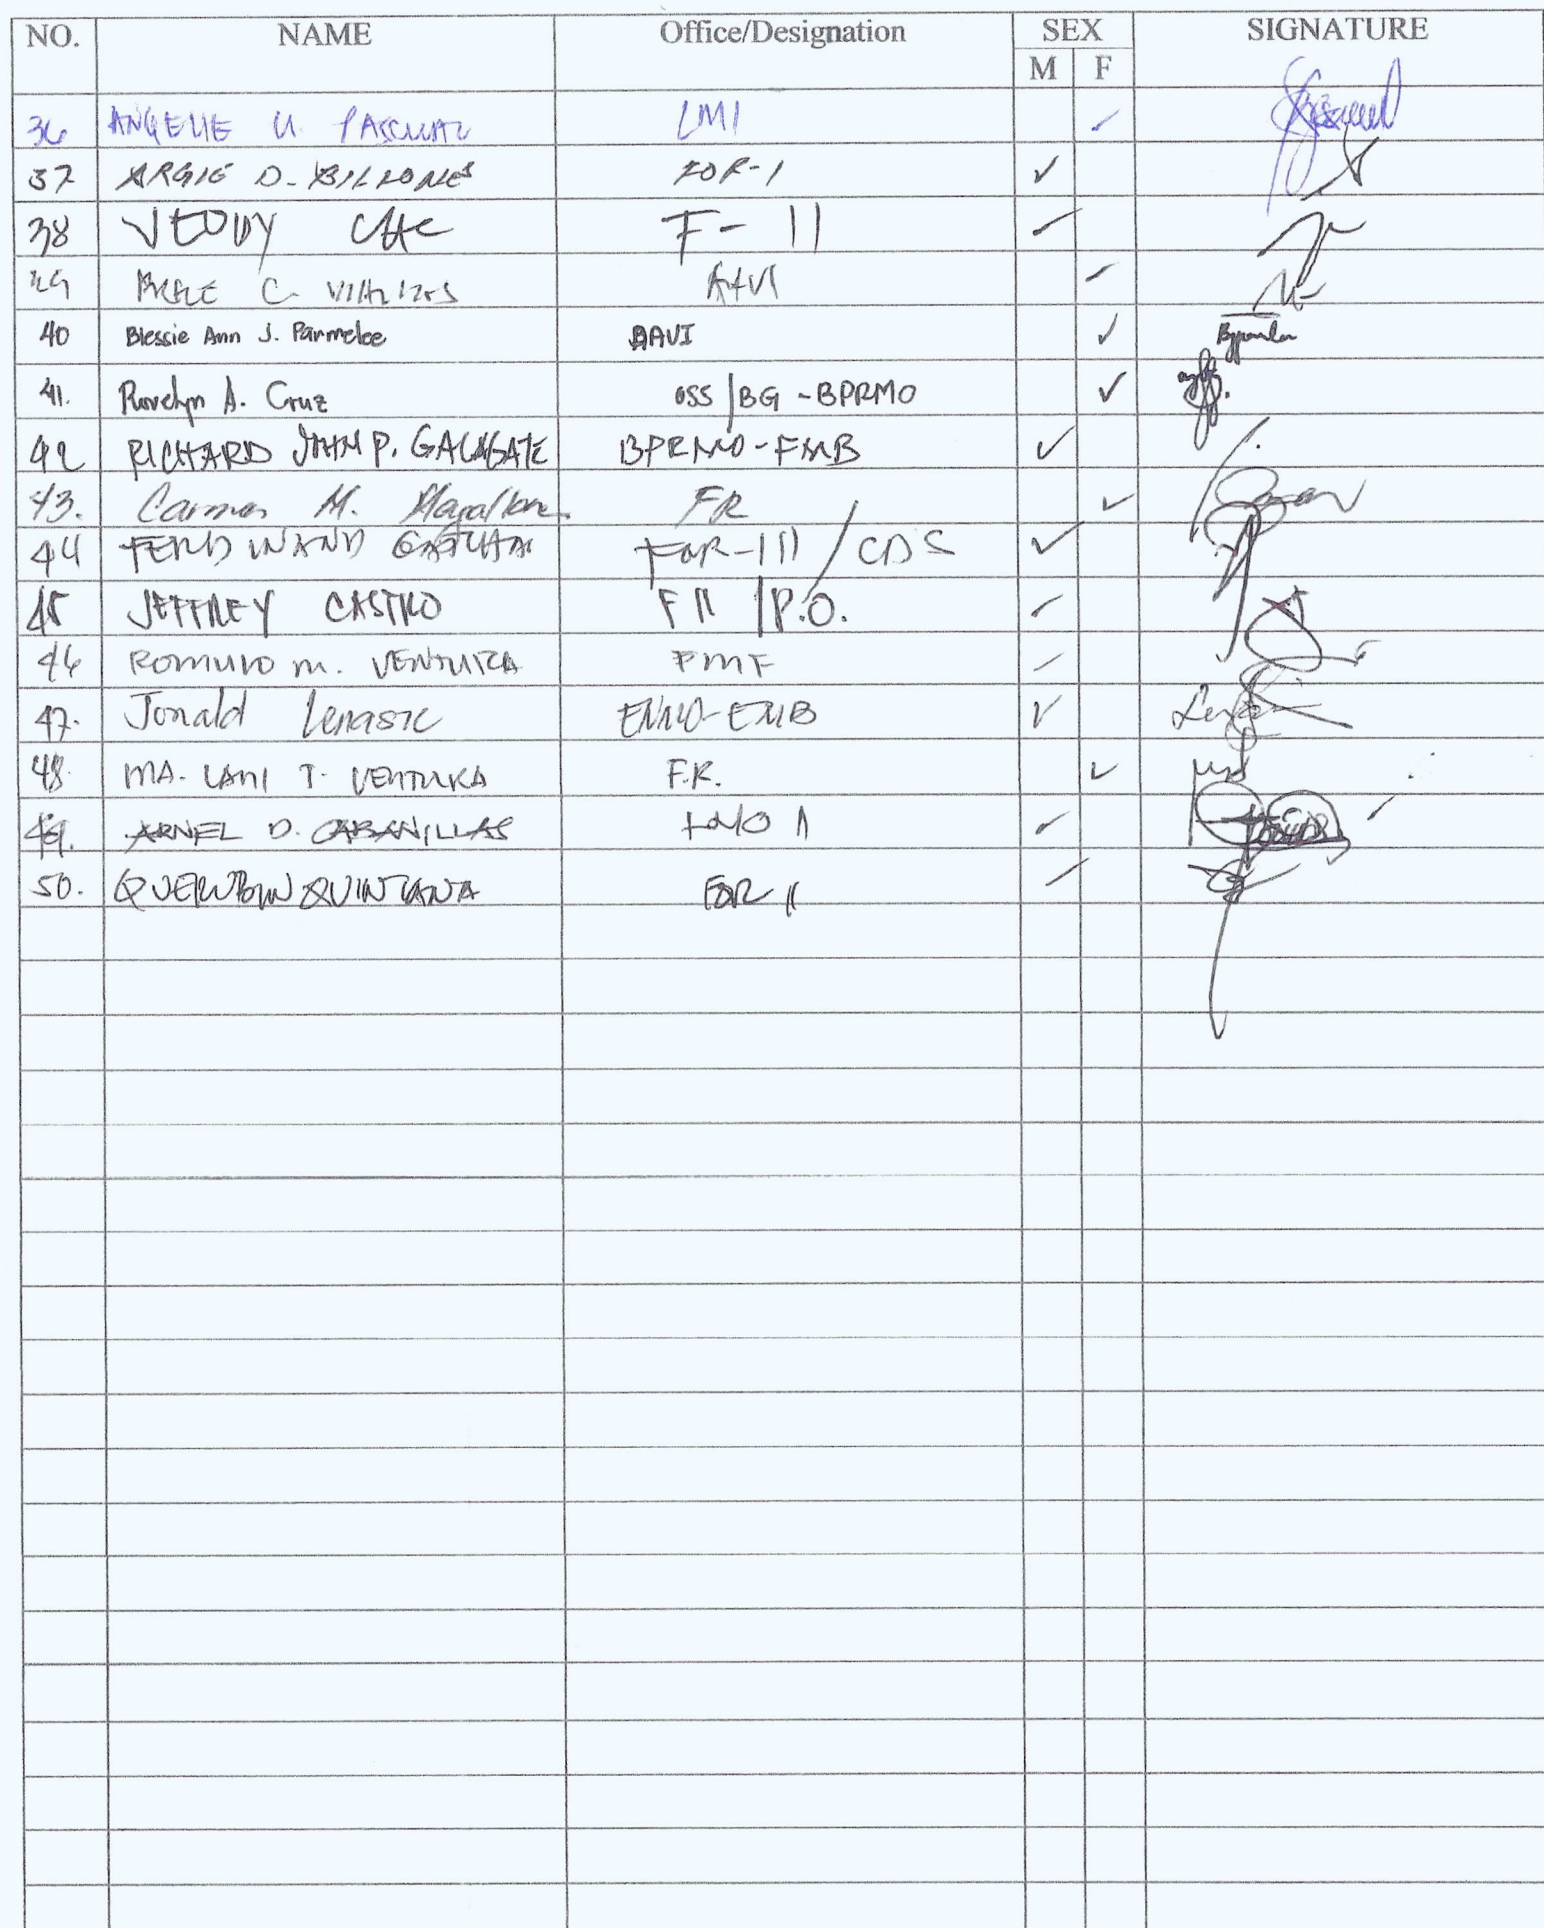 NO. NAME Office/Designation SEX SIGNATURE
M F
36 ANGELIE U. PASCUAL LMI
37 ARGIE D. BILLONES FOR-1
38 F- II
39 C.
40 Blessie Ann J. Parmelee AAVI
41. Rovelyn A. Cruz OSS/BG-BPRMO
42 RICHARD JOHN P. GALAGATE BPRMO-FMB
43. Carmen M. Magallon FR
44 FERDINAND FOR-III/CDS
45 JEFFREY CASTRO F II /P.O.
46 ROMULO M. VENTURA FMF
47. Jonald Lenasic EMMO-EMB
48. MA. LANI T. VENTURA F.R.
49. ARNEL D. CABANILLAS LMO II
50. QUERUBIN QUINTANA FOR II